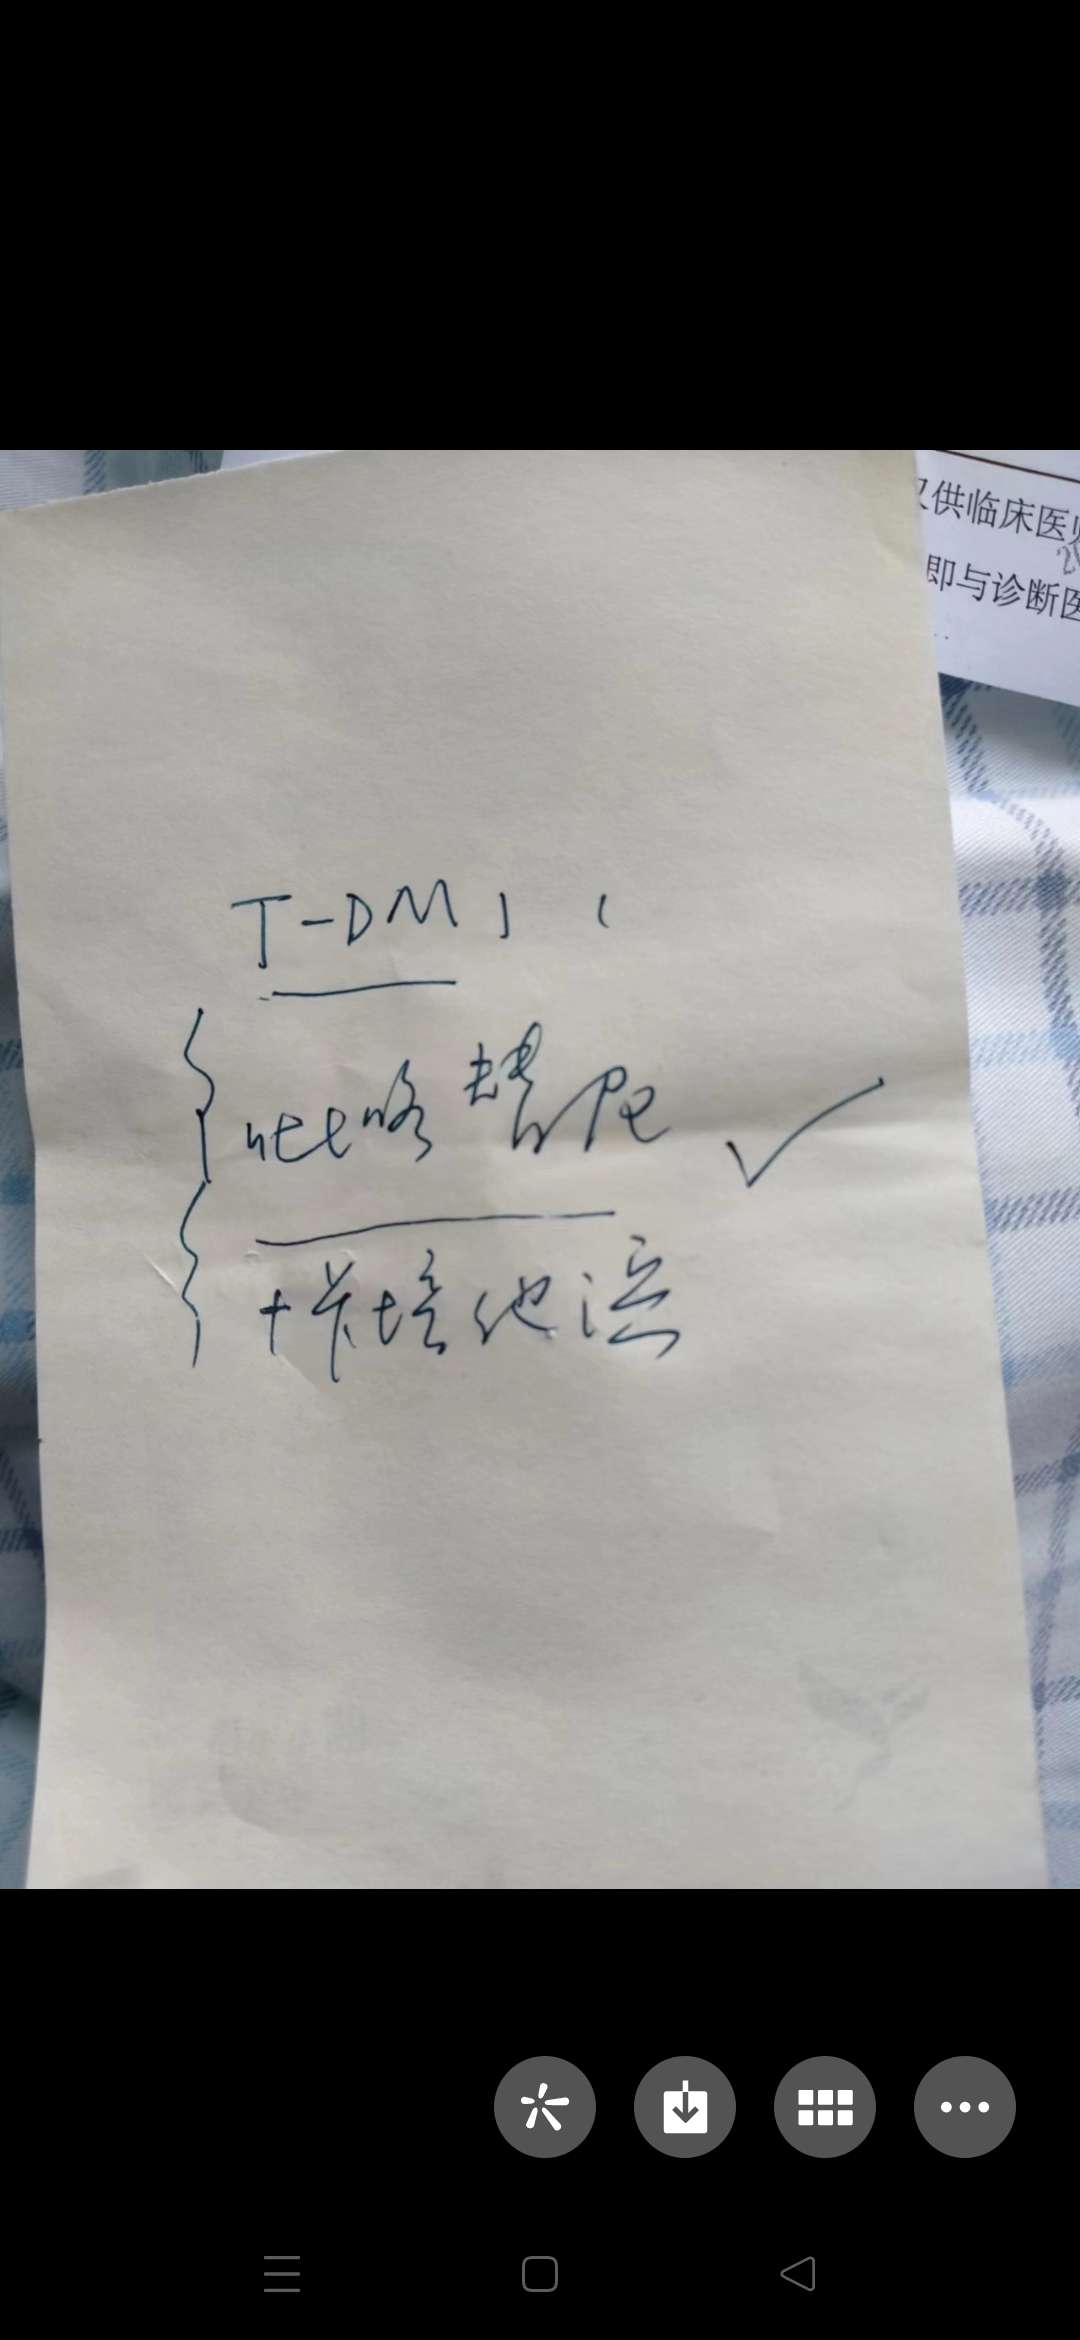 供临床医
即与诊断医
T-DM1 (
吡咯替尼 ✓
+卡培他滨